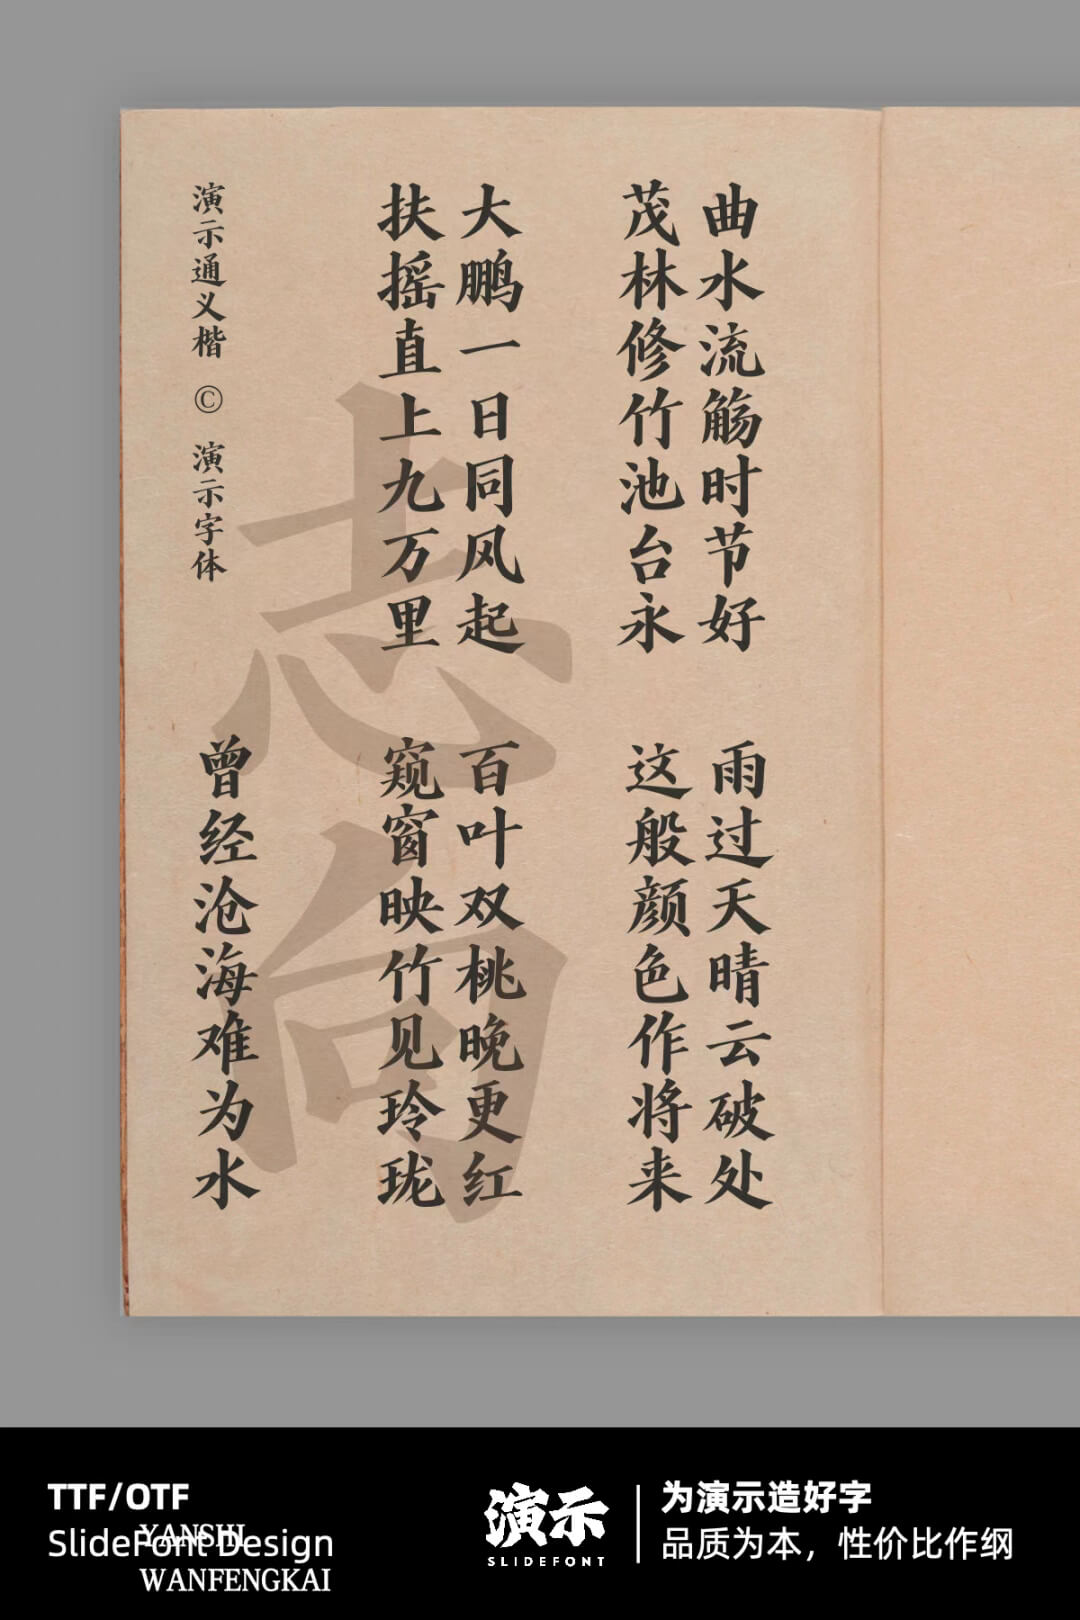 曲水流觞时节好
茂林修竹池台永
雨过天晴云破处
这般颜色作将来
大鹏一日同风起
扶摇直上九万里
百叶双桃晚更红
窥窗映竹见玲珑
曾经沧海难为水
演示通义楷 © 演示字体
志向
TTF/OTF
SlideFont Design
YANSHI
WANFENGKAI
演示
SLIDEFONT
为演示造好字
品质为本，性价比作纲